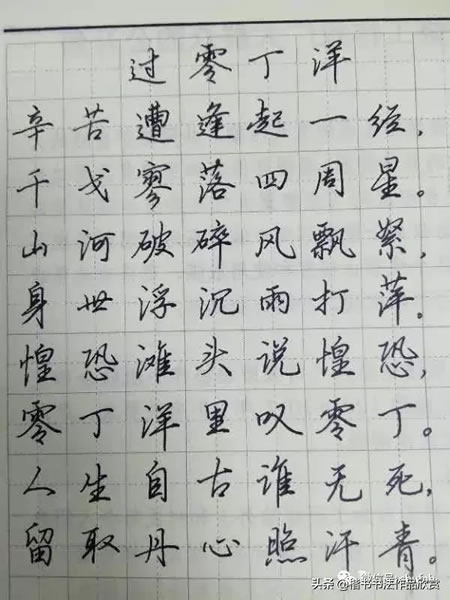 过零丁洋
辛苦遭逢起一经，
干戈寥落四周星。
山河破碎风飘絮，
身世浮沉雨打萍。
惶恐滩头说惶恐，
零丁洋里叹零丁。
人生自古谁无死，
留取丹心照汗青。
头条 @楷书书法作品欣赏